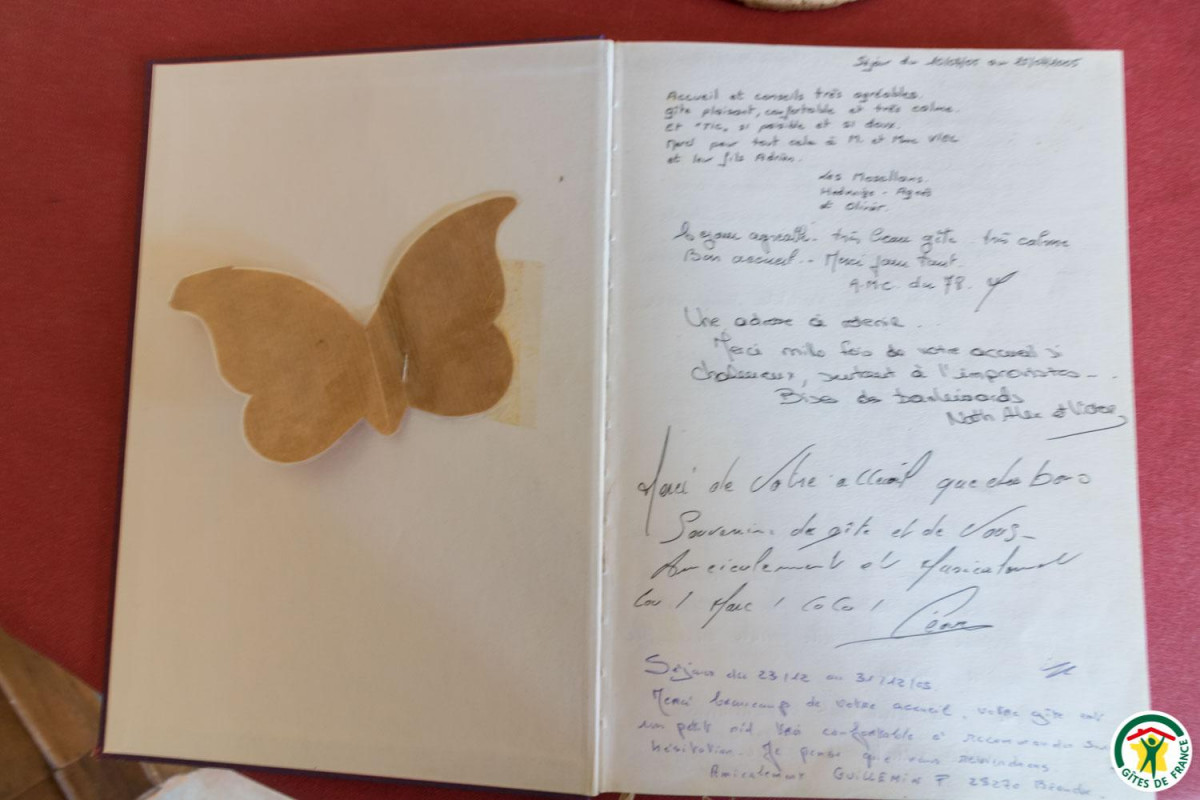 Séjour du au
Accueil et conseils très agréables.
gîte plaisant, confortable et très calme.
et "Tic" si paisible et si doux.
Merci pour tout cela à M. et Mme
et leur fils Adrien.
Les Mosellans.
Hedwige - Agnès
et Olivier.
très beau gîte très calme
Bon accueil.. Merci pour tout.
A.M.C. du 78.
Une adresse à retenir...
Merci mille fois de votre accueil si
chaleureux, surtout à l'improviste...
Bises des banlieusards
Nath Alex et
Merci de votre accueil que des bons
Souvenirs de gîte et de Vous
Amicalement et Musicalement
Lou / Marc / CoCo /
Séjour du 23/12 au 31/12/05
Merci beaucoup de votre accueil, votre gîte est
un petit nid très confortable à recommander sans
hésitation. Je pense que nous reviendrons
Amicalement GUILLEMIN F
GÎTES DE FRANCE